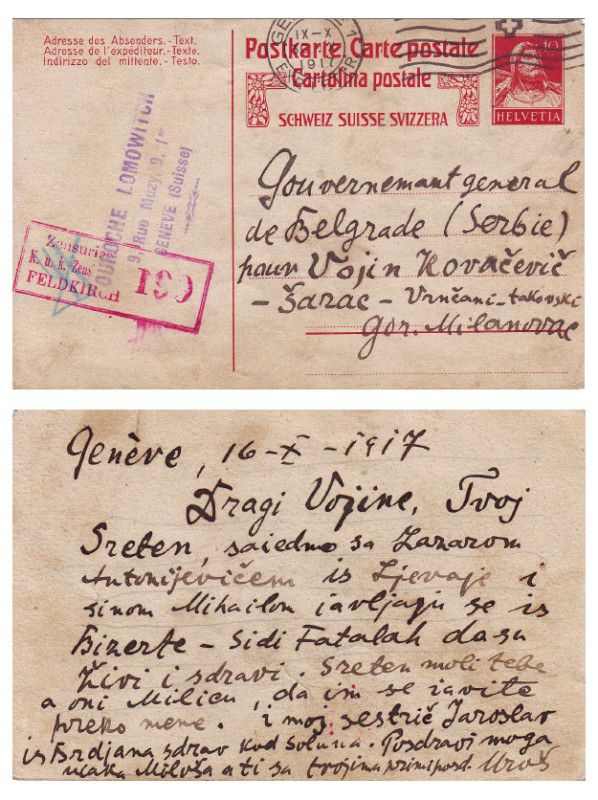 Adresse des Absenders.-Text.
Adresse de l'expéditeur.-Texte.
Indirizzo del mittente.-Testo.
IX-X
1917
Postkarte. Carte postale
Cartolina postale
SCHWEIZ SUISSE SVIZZERA
10
HELVETIA
OUROCHE LOMOWITCH
9, Rue Muzy, 9, 1er
GENÈVE (Suisse)
Zensuriert
K. u. k. Zens
FELDKIRCH
190
Gouvernemant general
de Belgrade (Serbie)
pour Vojin Kovačevič
- Šarac - Vrnčani-takovski
gor. Milanovac
Genève, 16-X-1917
Dragi Vojine, Tvoj
Sreten, zaiedno sa Lazarom
Antonijevičem is Ljevaje i
sinom Mihailom iavljaju se is
Bizerte - Sidi Fatalah da su
živi i zdravi. Sreten moli tebe
a oni Milicu, da im se iavite
preko mene. i moj sestrič Jaroslav
is Brdjana zdrav kod Soluna. Pozdravi moga
ujaka Miloša a ti sa tvojima primi pozd. Uroš